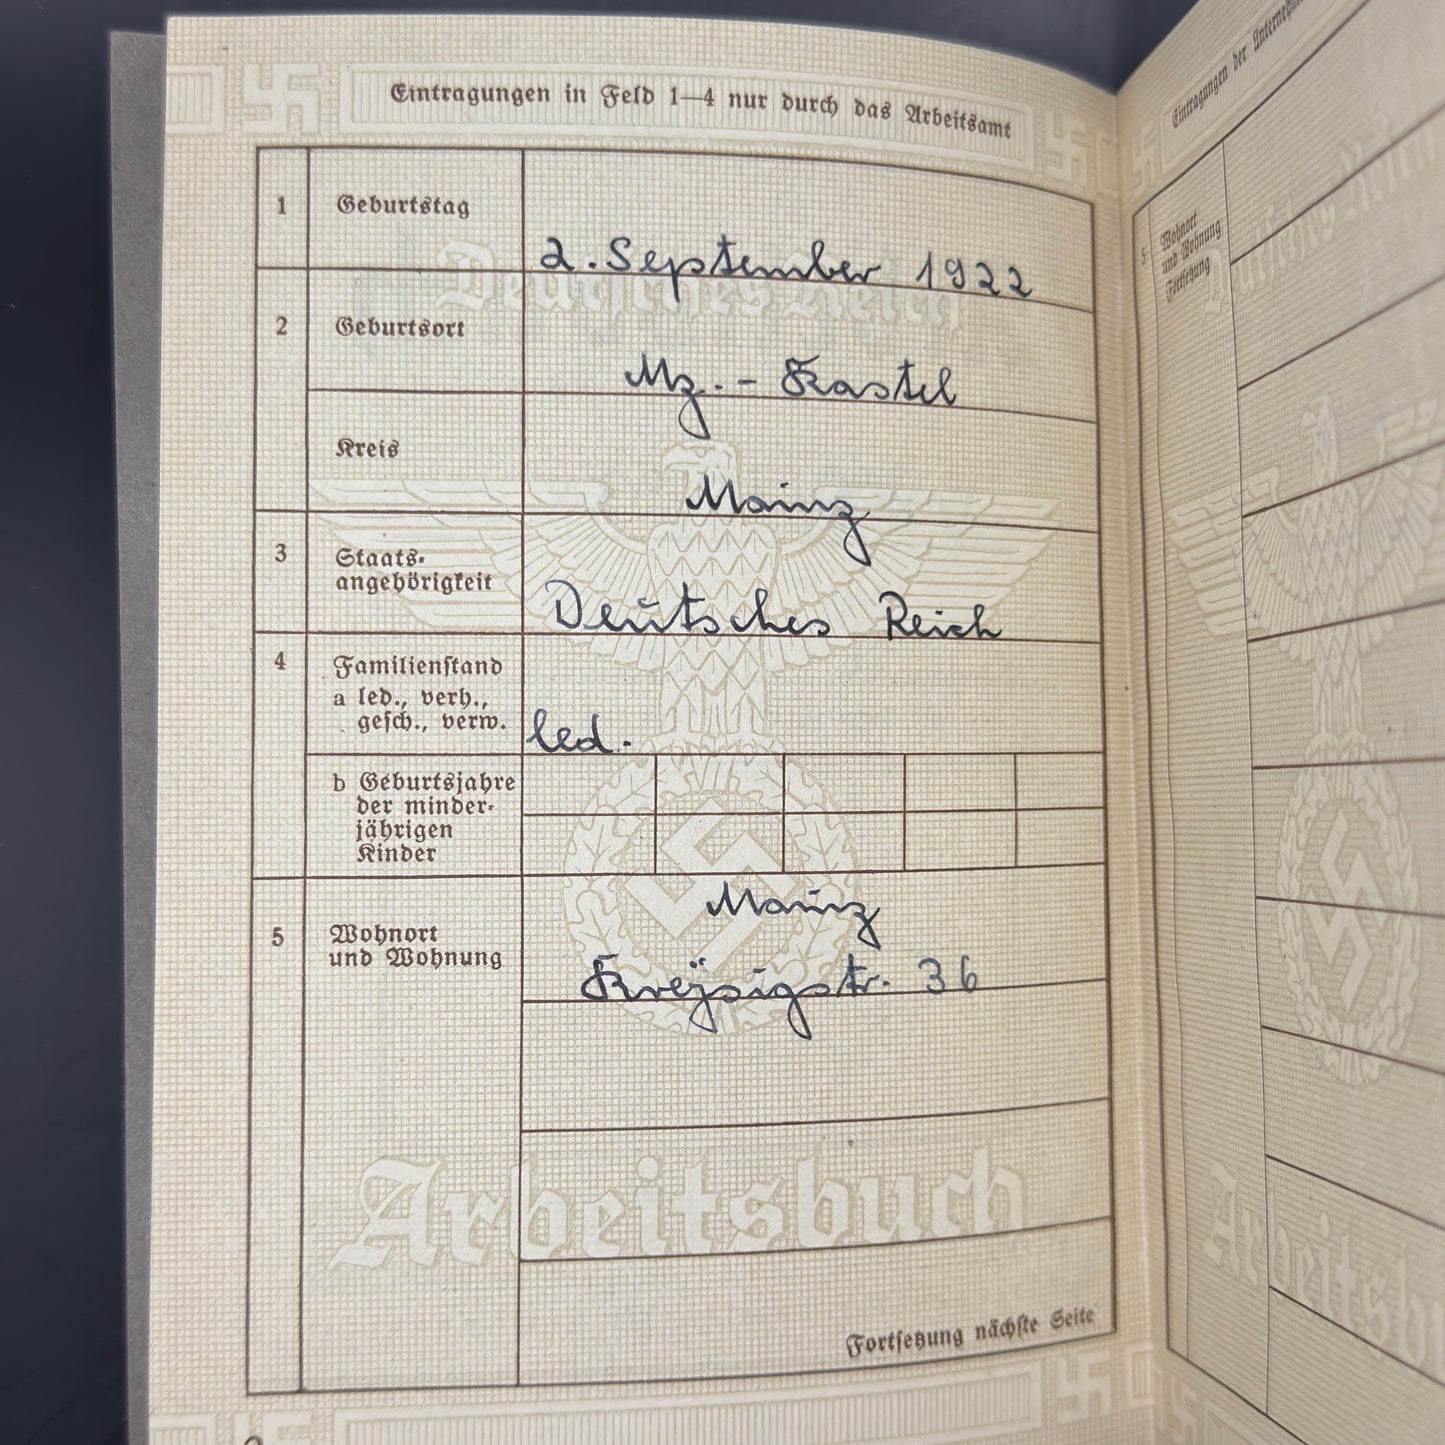 Eintragungen in Feld 1—4 nur durch das Arbeitsamt
1 Geburtstag
2. September 1922
Deutsches Reich
2 Geburtsort
Mz. - Kastel
Kreis
Mainz
3 Staats-
angehörigkeit
Deutsches Reich
4 Familienstand
a led., verh.,
gesch., verw.
led.
b Geburtsjahre
der minder-
jährigen
Kinder
5 Wohnort
und Wohnung
Mainz
Kreyssigstr. 36
Arbeitsbuch
Fortsetzung nächste Seite
Eintragungen der
5 Wohnort
und Wohnung
Fortsetzung